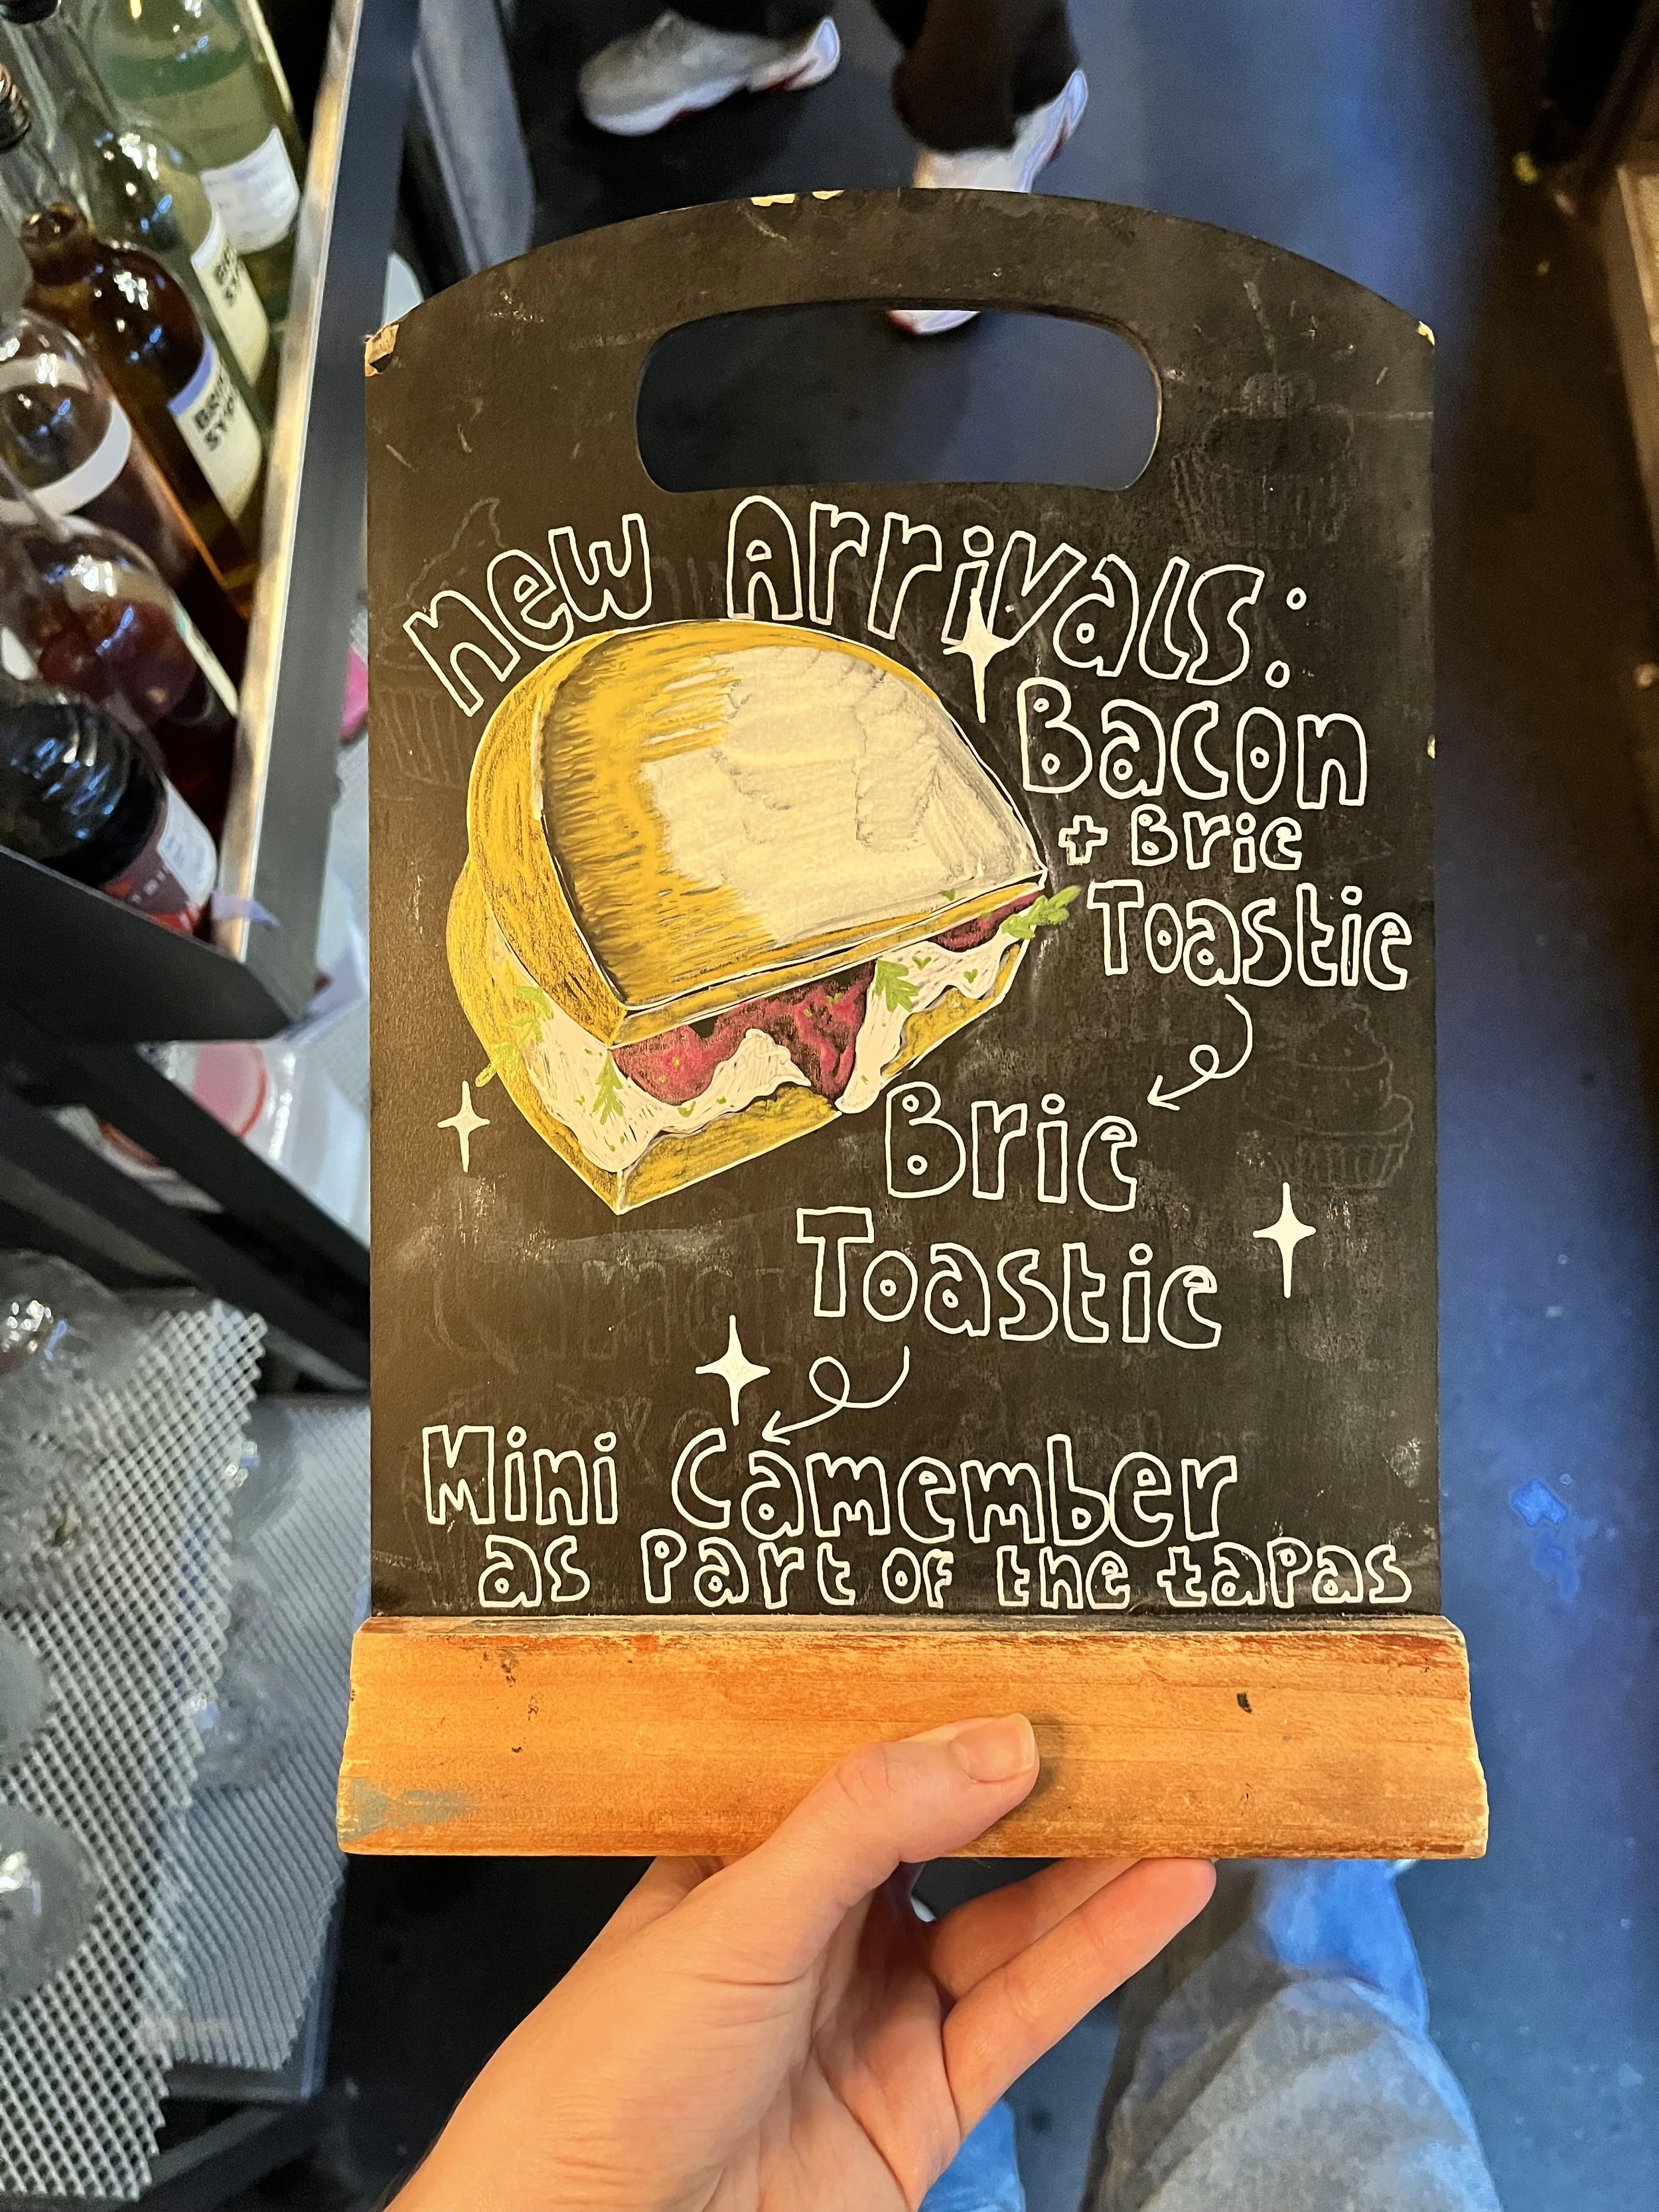 New Arrivals:
Bacon
+ Brie
Toastie
Brie
Toastie
Mini Camember
as Part of the tapas